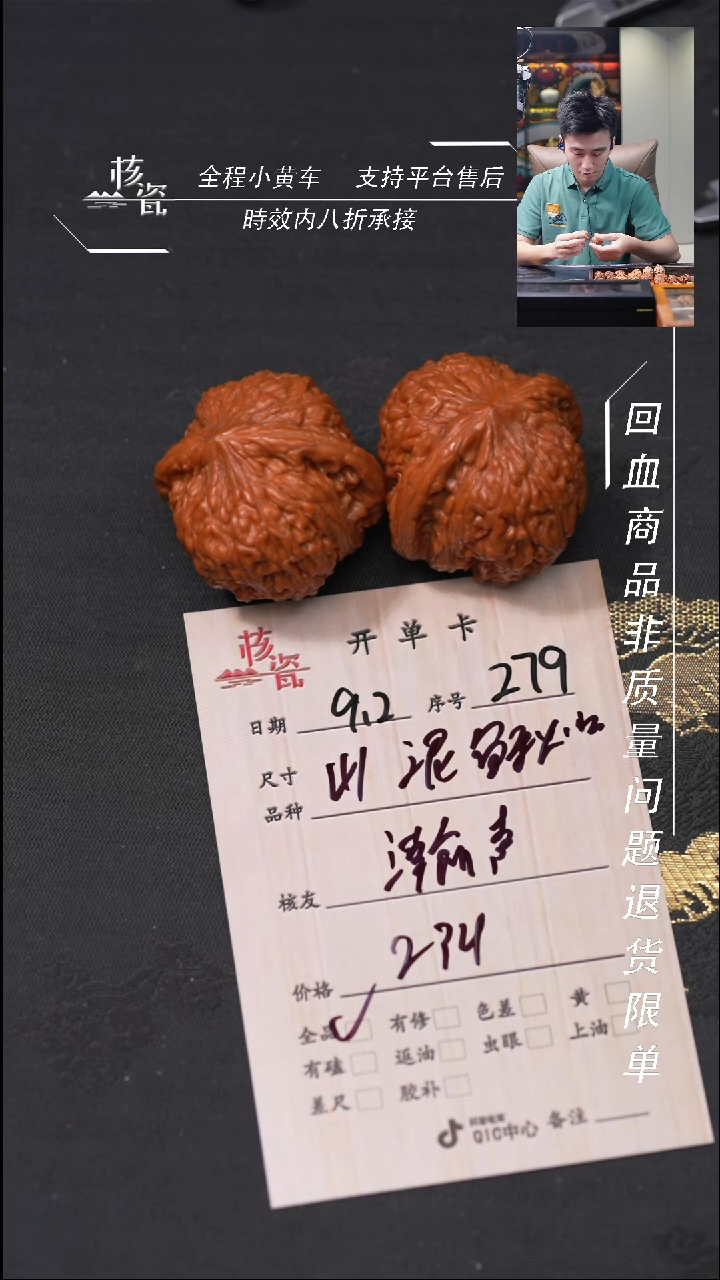 核瓷
全程小黄车 支持平台售后
時效内八折承接
回血商品非质量问题退货限单
核瓷
开单卡
日期 9.2 序号 279
尺寸
品种
核友
价格 234
全品 有修 色差 黄
有磕 返油 虫眼 上油
差尺 胶补
QIC中心 备注